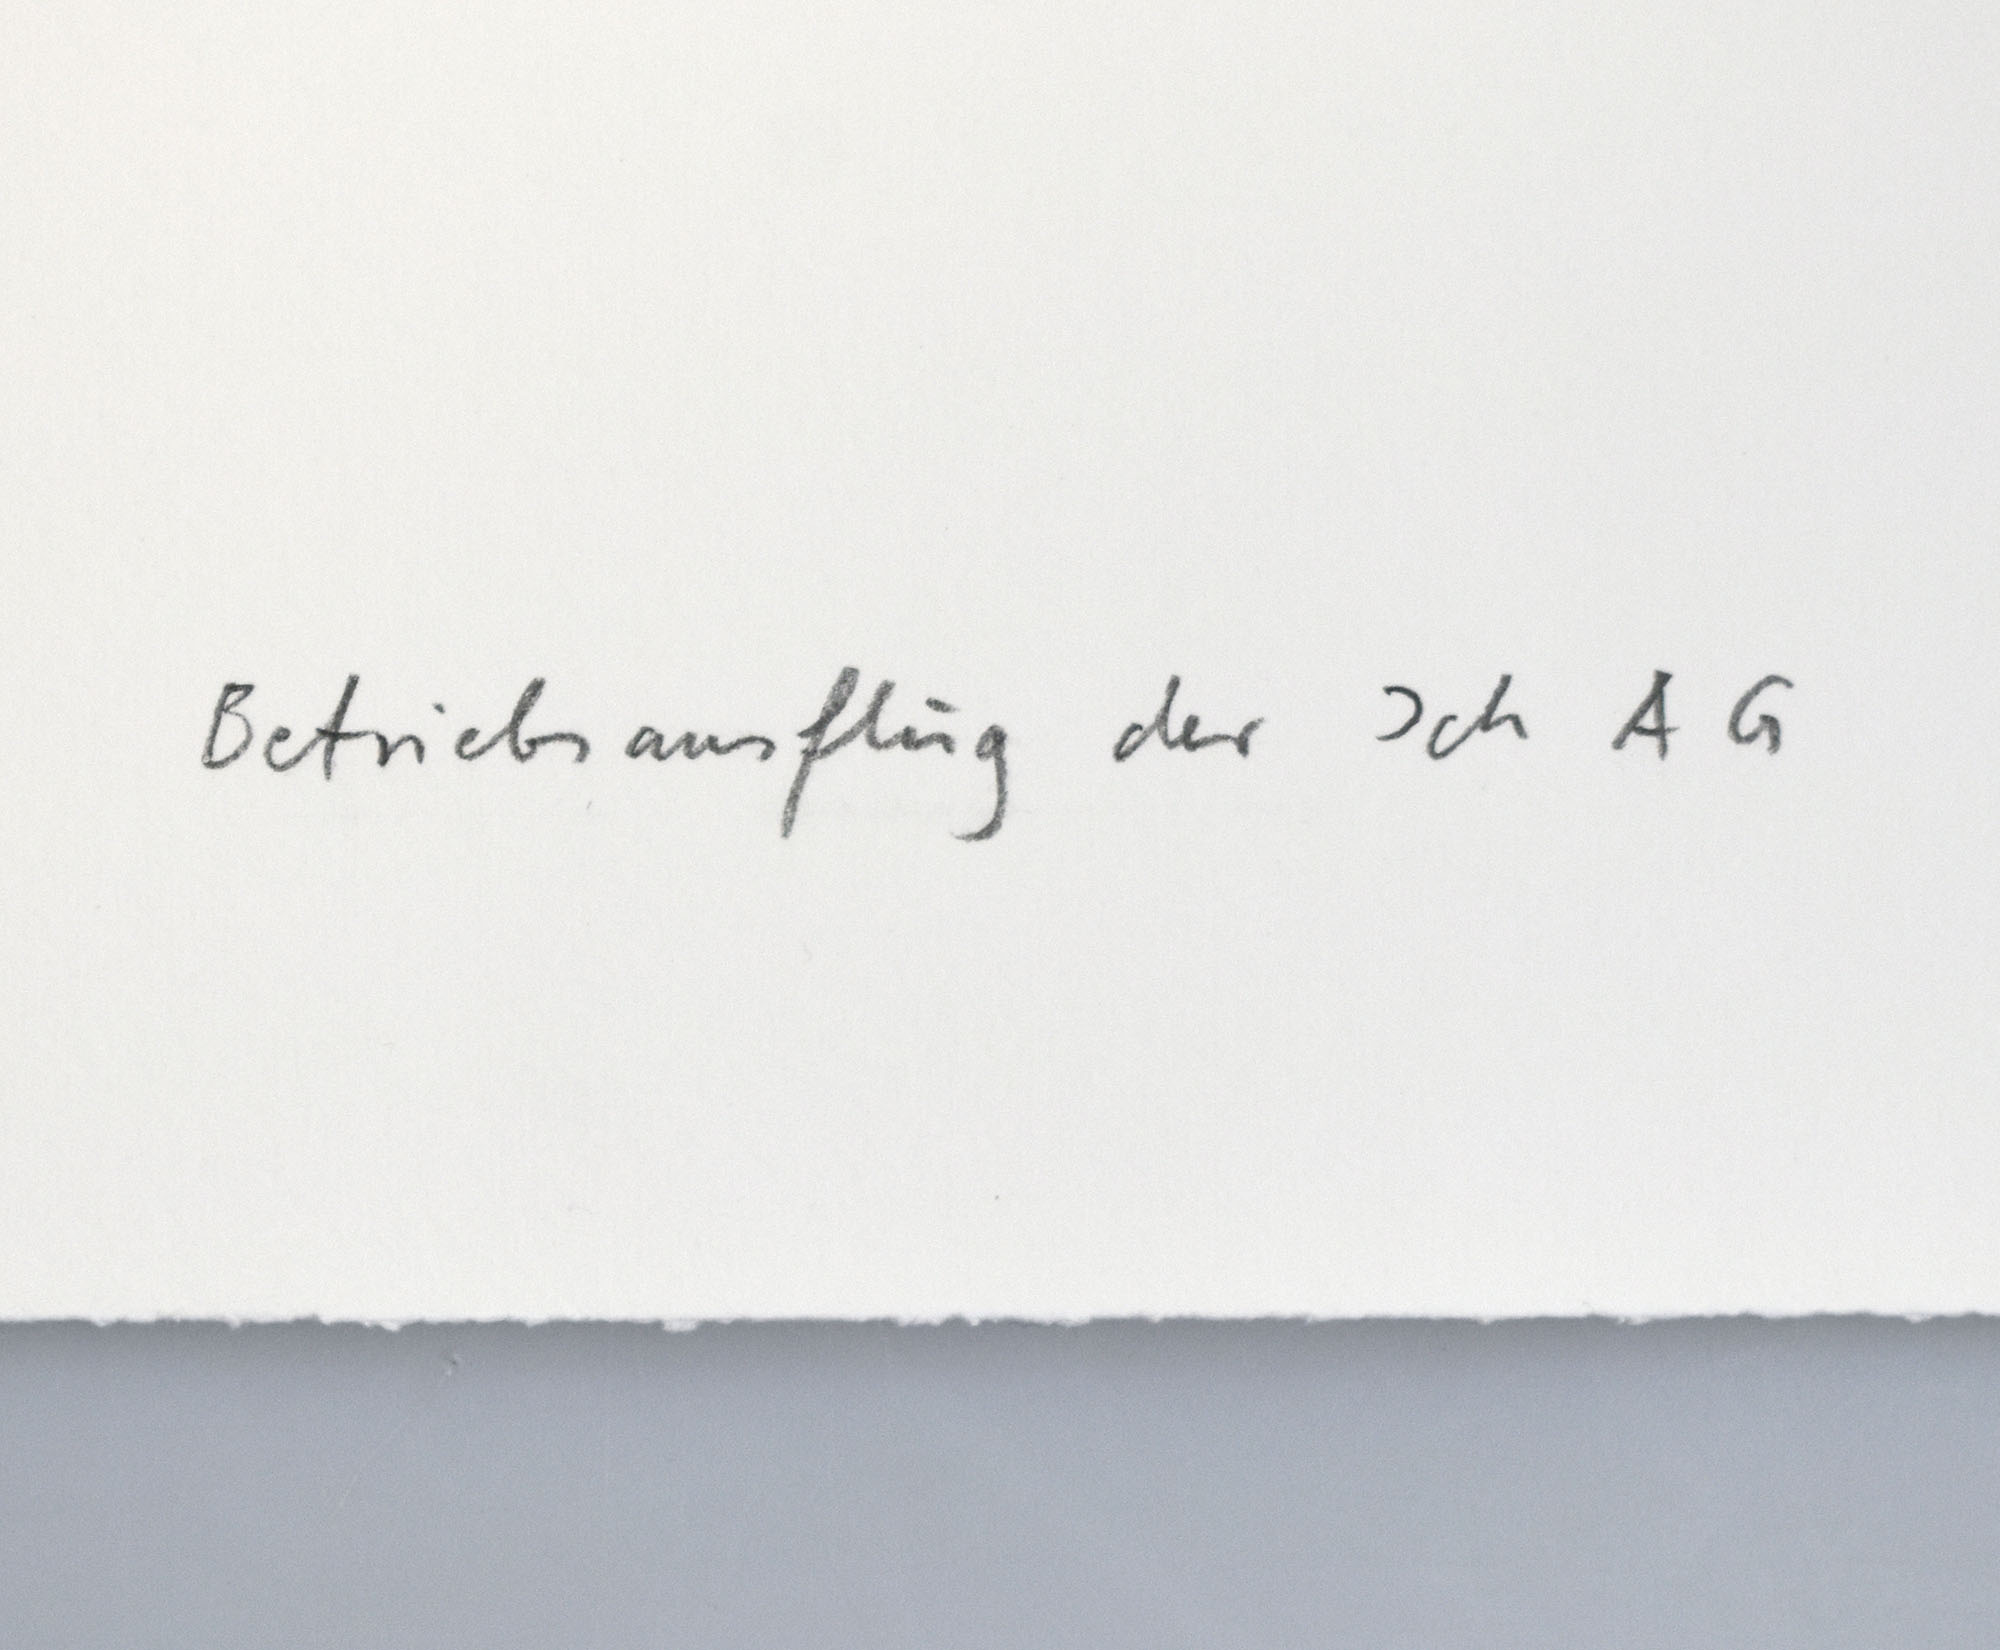 Betriebsausflug der Ich AG